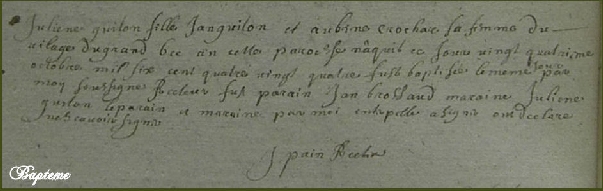 Juliene quilon fille Janquilon et aubine crochar sa femme du
vilage du grand bee an cette paroesse naquit ce jour vingt quatriesme
octobre mil six cent quatre vingt quatre fust baptisée le meme jour par
moy soussigne Recteur fut parain Jan brossaud maraine Juliene
quilon le parain et maraine par moi enterpellé a signe ont declare
ne scavoir signe
J pain Recteur
Bapteme